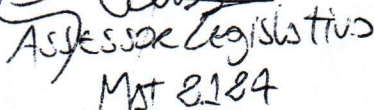 Assessor Legislativo
Mat 2.124